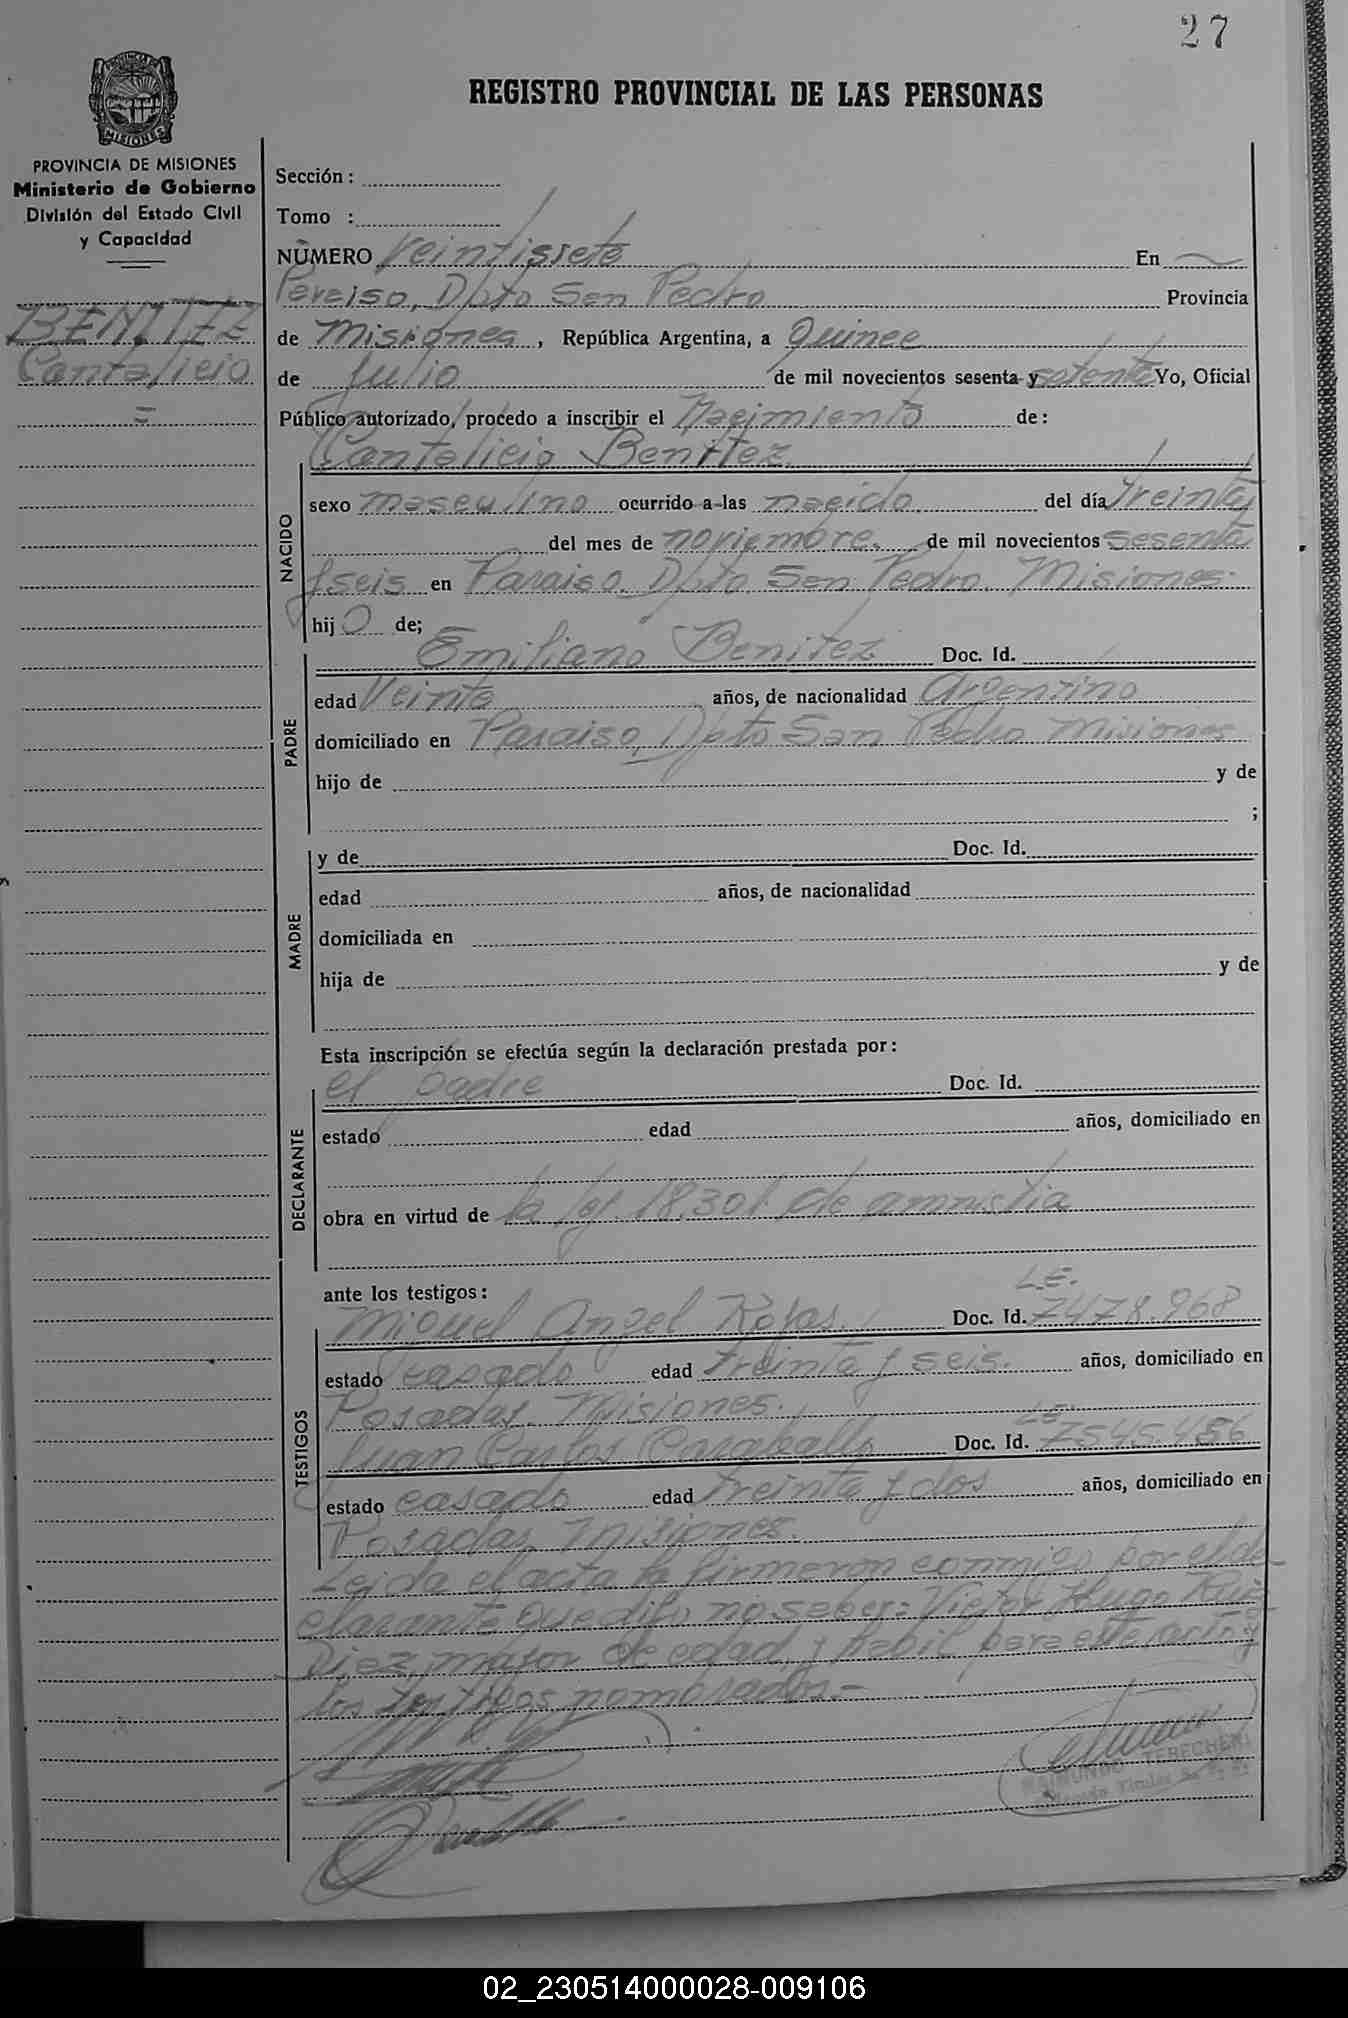 27
REGISTRO PROVINCIAL DE LAS PERSONAS
PROVINCIA DE MISIONES
MISIONES
Ministerio de Gobierno
División del Estado Civil
y Capacidad
BENITEZ
Cantalicio
=
Sección :
Tomo :
NÚMERO Veintissete En
Pereiso, Dpto San Pedro Provincia
de Misiones, República Argentina, a Quince
de Julio de mil novecientos sesenta y setenta Yo, Oficial
Público autorizado, procedo a inscribir el Nacimiento de:
Cantalicio Benitez
NACIDO
sexo masculino ocurrido a las nacido del día treinta
del mes de noviembre. de mil novecientos sesenta
y seis en Paraiso, Dpto San Pedro. Misiones.
hijo de;
PADRE
Emiliano Benitez Doc. Id.
edad Veinte años, de nacionalidad Argentino
domiciliado en Paraiso, Dpto San Pedro Misiones
hijo de y de
;
MADRE
y de Doc. Id.
edad años, de nacionalidad
domiciliada en
hija de y de
Esta inscripción se efectúa según la declaración prestada por:
DECLARANTE
el padre Doc. Id.
estado edad años, domiciliado en
obra en virtud de la ley 18.301 de amnistia
ante los testigos: L.E.
TESTIGOS
Miguel Angel Rojas. Doc. Id. 7478.968
estado casado edad treinta y seis. años, domiciliado en
Posadas. Misiones. L.E.
Juan Carlos Caraballo Doc. Id. 7545.456
estado casado edad treinta y dos años, domiciliado en
Posadas Misiones.
Leida el acta la firmaron conmigo por el de-
clarante que dijo no saber: Victor Hugo Ruiz
Diez, mayor de edad y habil para este acto y
los testigos nombrados.-
RAIMUNDO TERECHENI
02_230514000028-009106